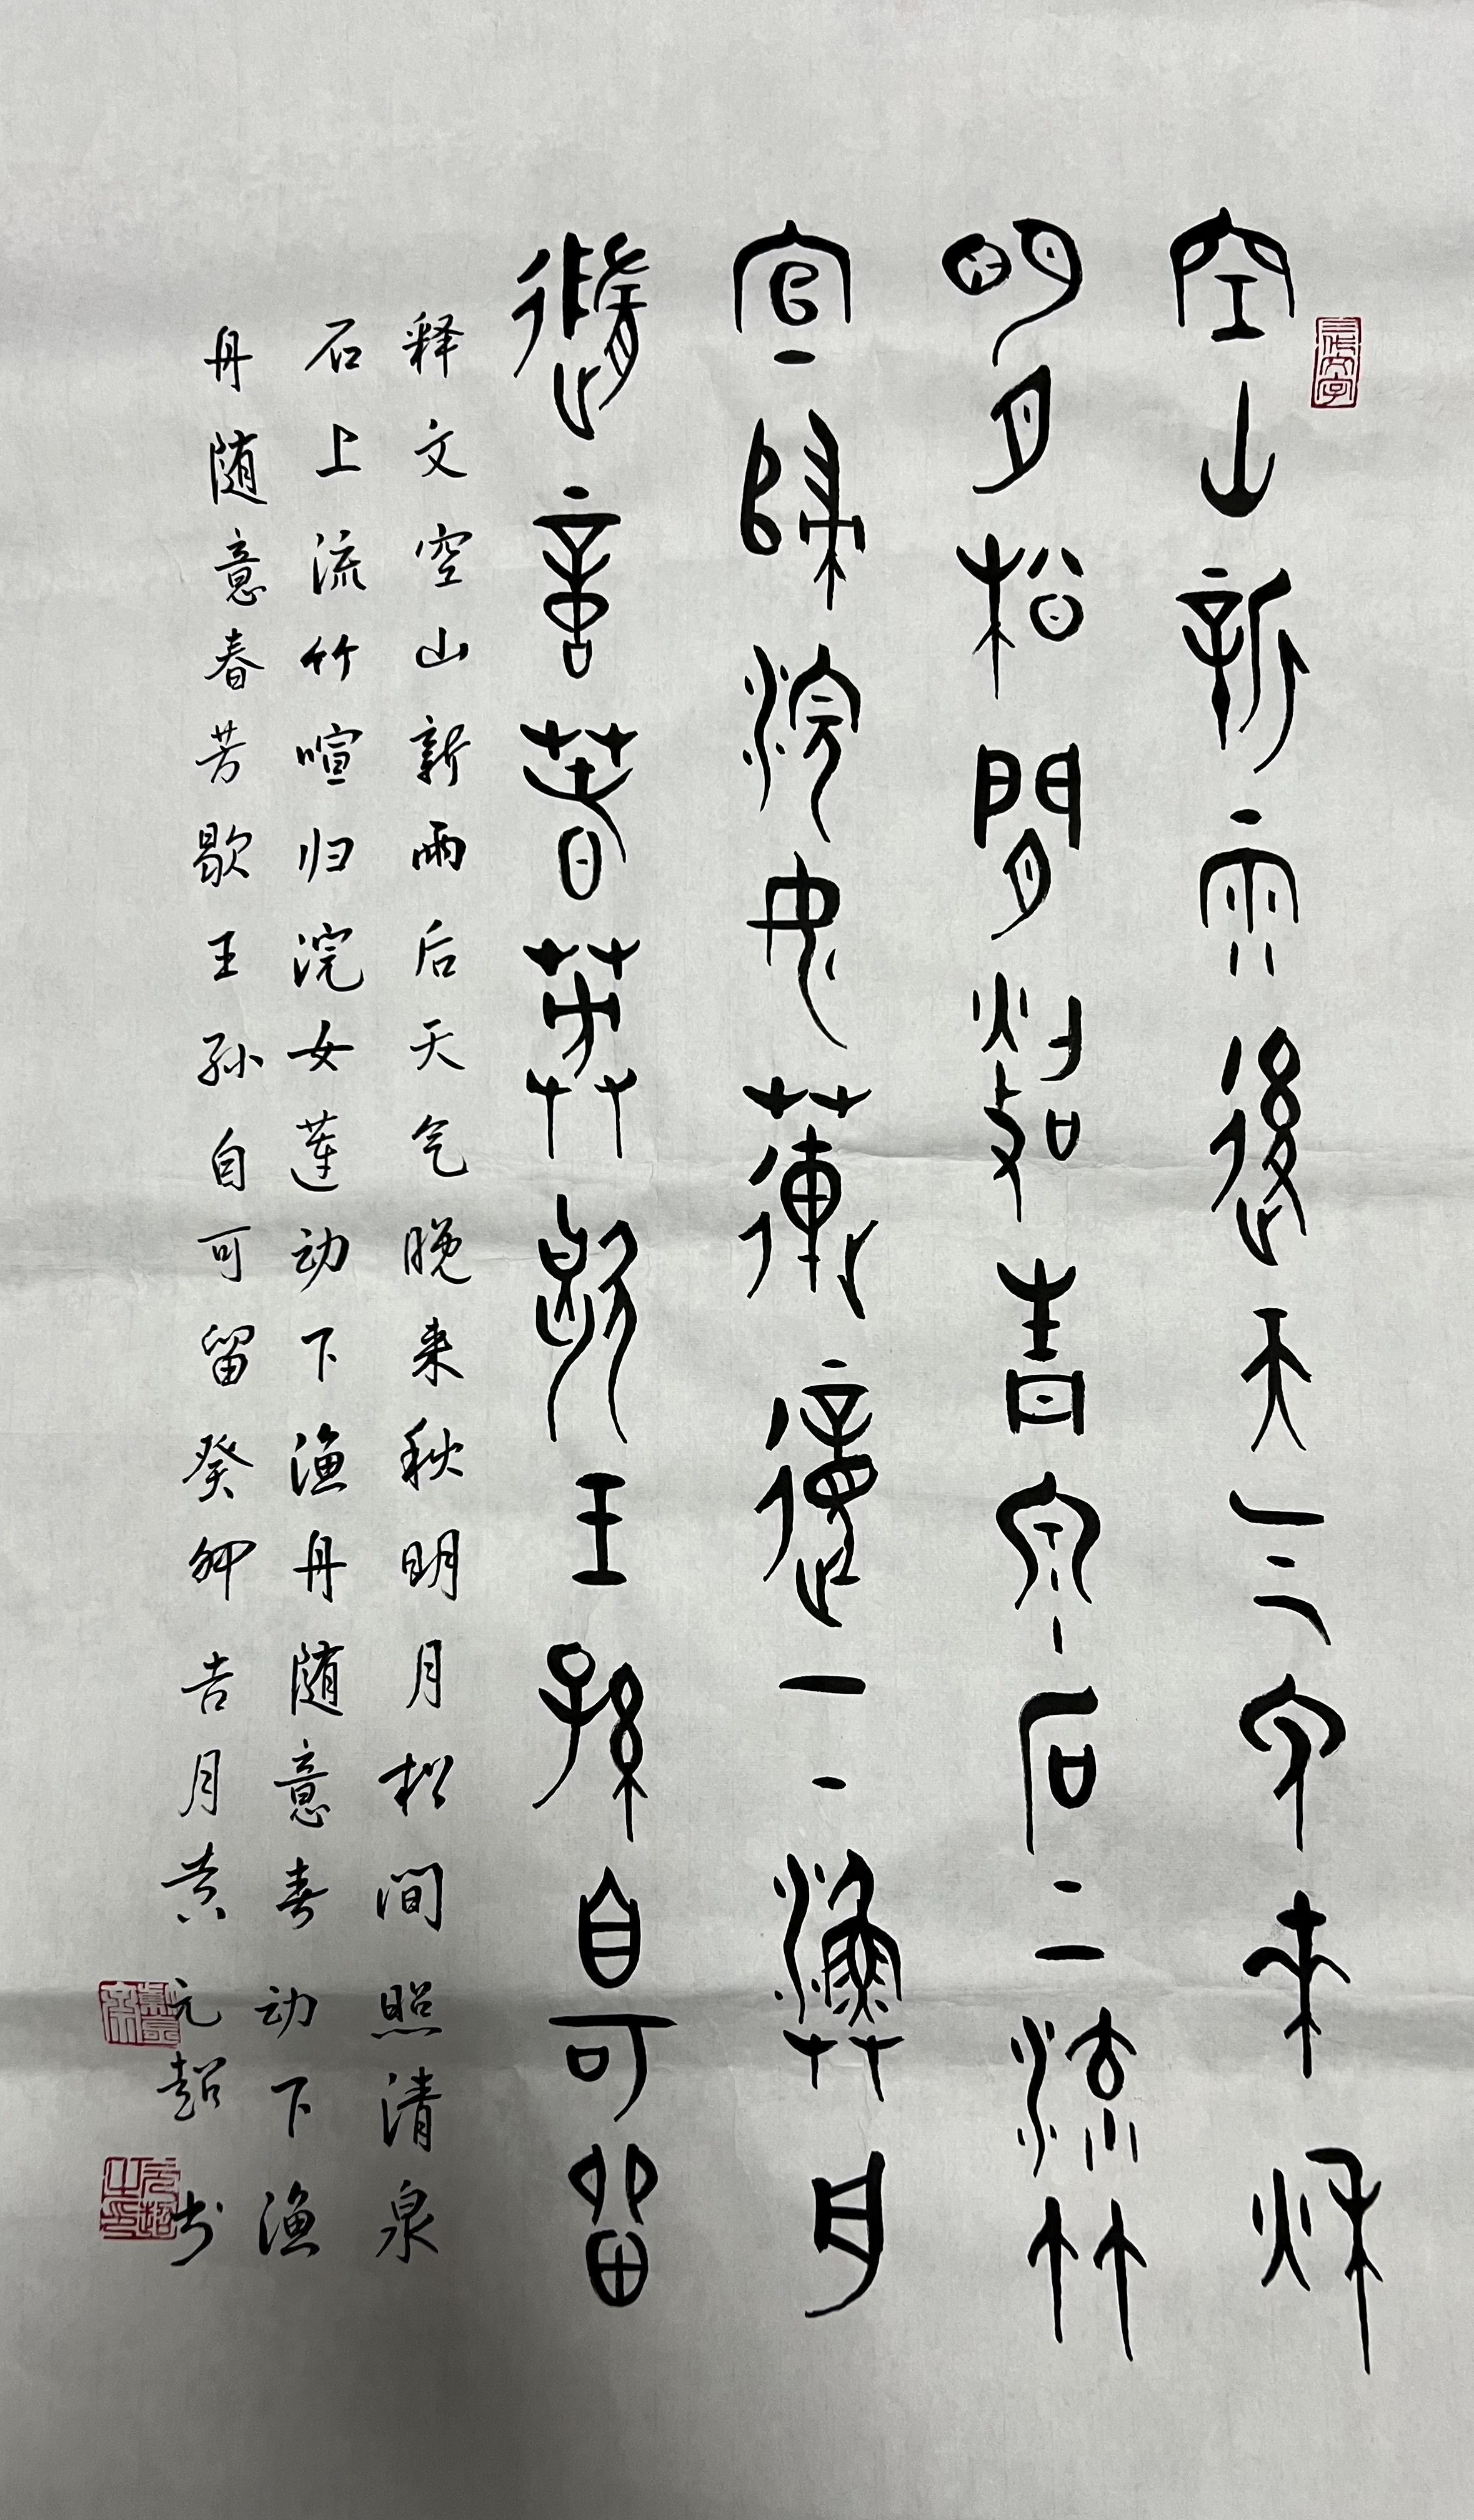 三代文字
空山新雨後天气免来秋
明月松間照青泉石上流竹
宣歸浣女蓮動下漁舟
隨意春芳歇王孫自可留
释文空山新雨后天气晚来秋明月松间照清泉
石上流竹喧归浣女莲动下渔舟随意春动下渔
舟随意春芳歇王孙自可留癸卯吉月黄元超书
元超之印